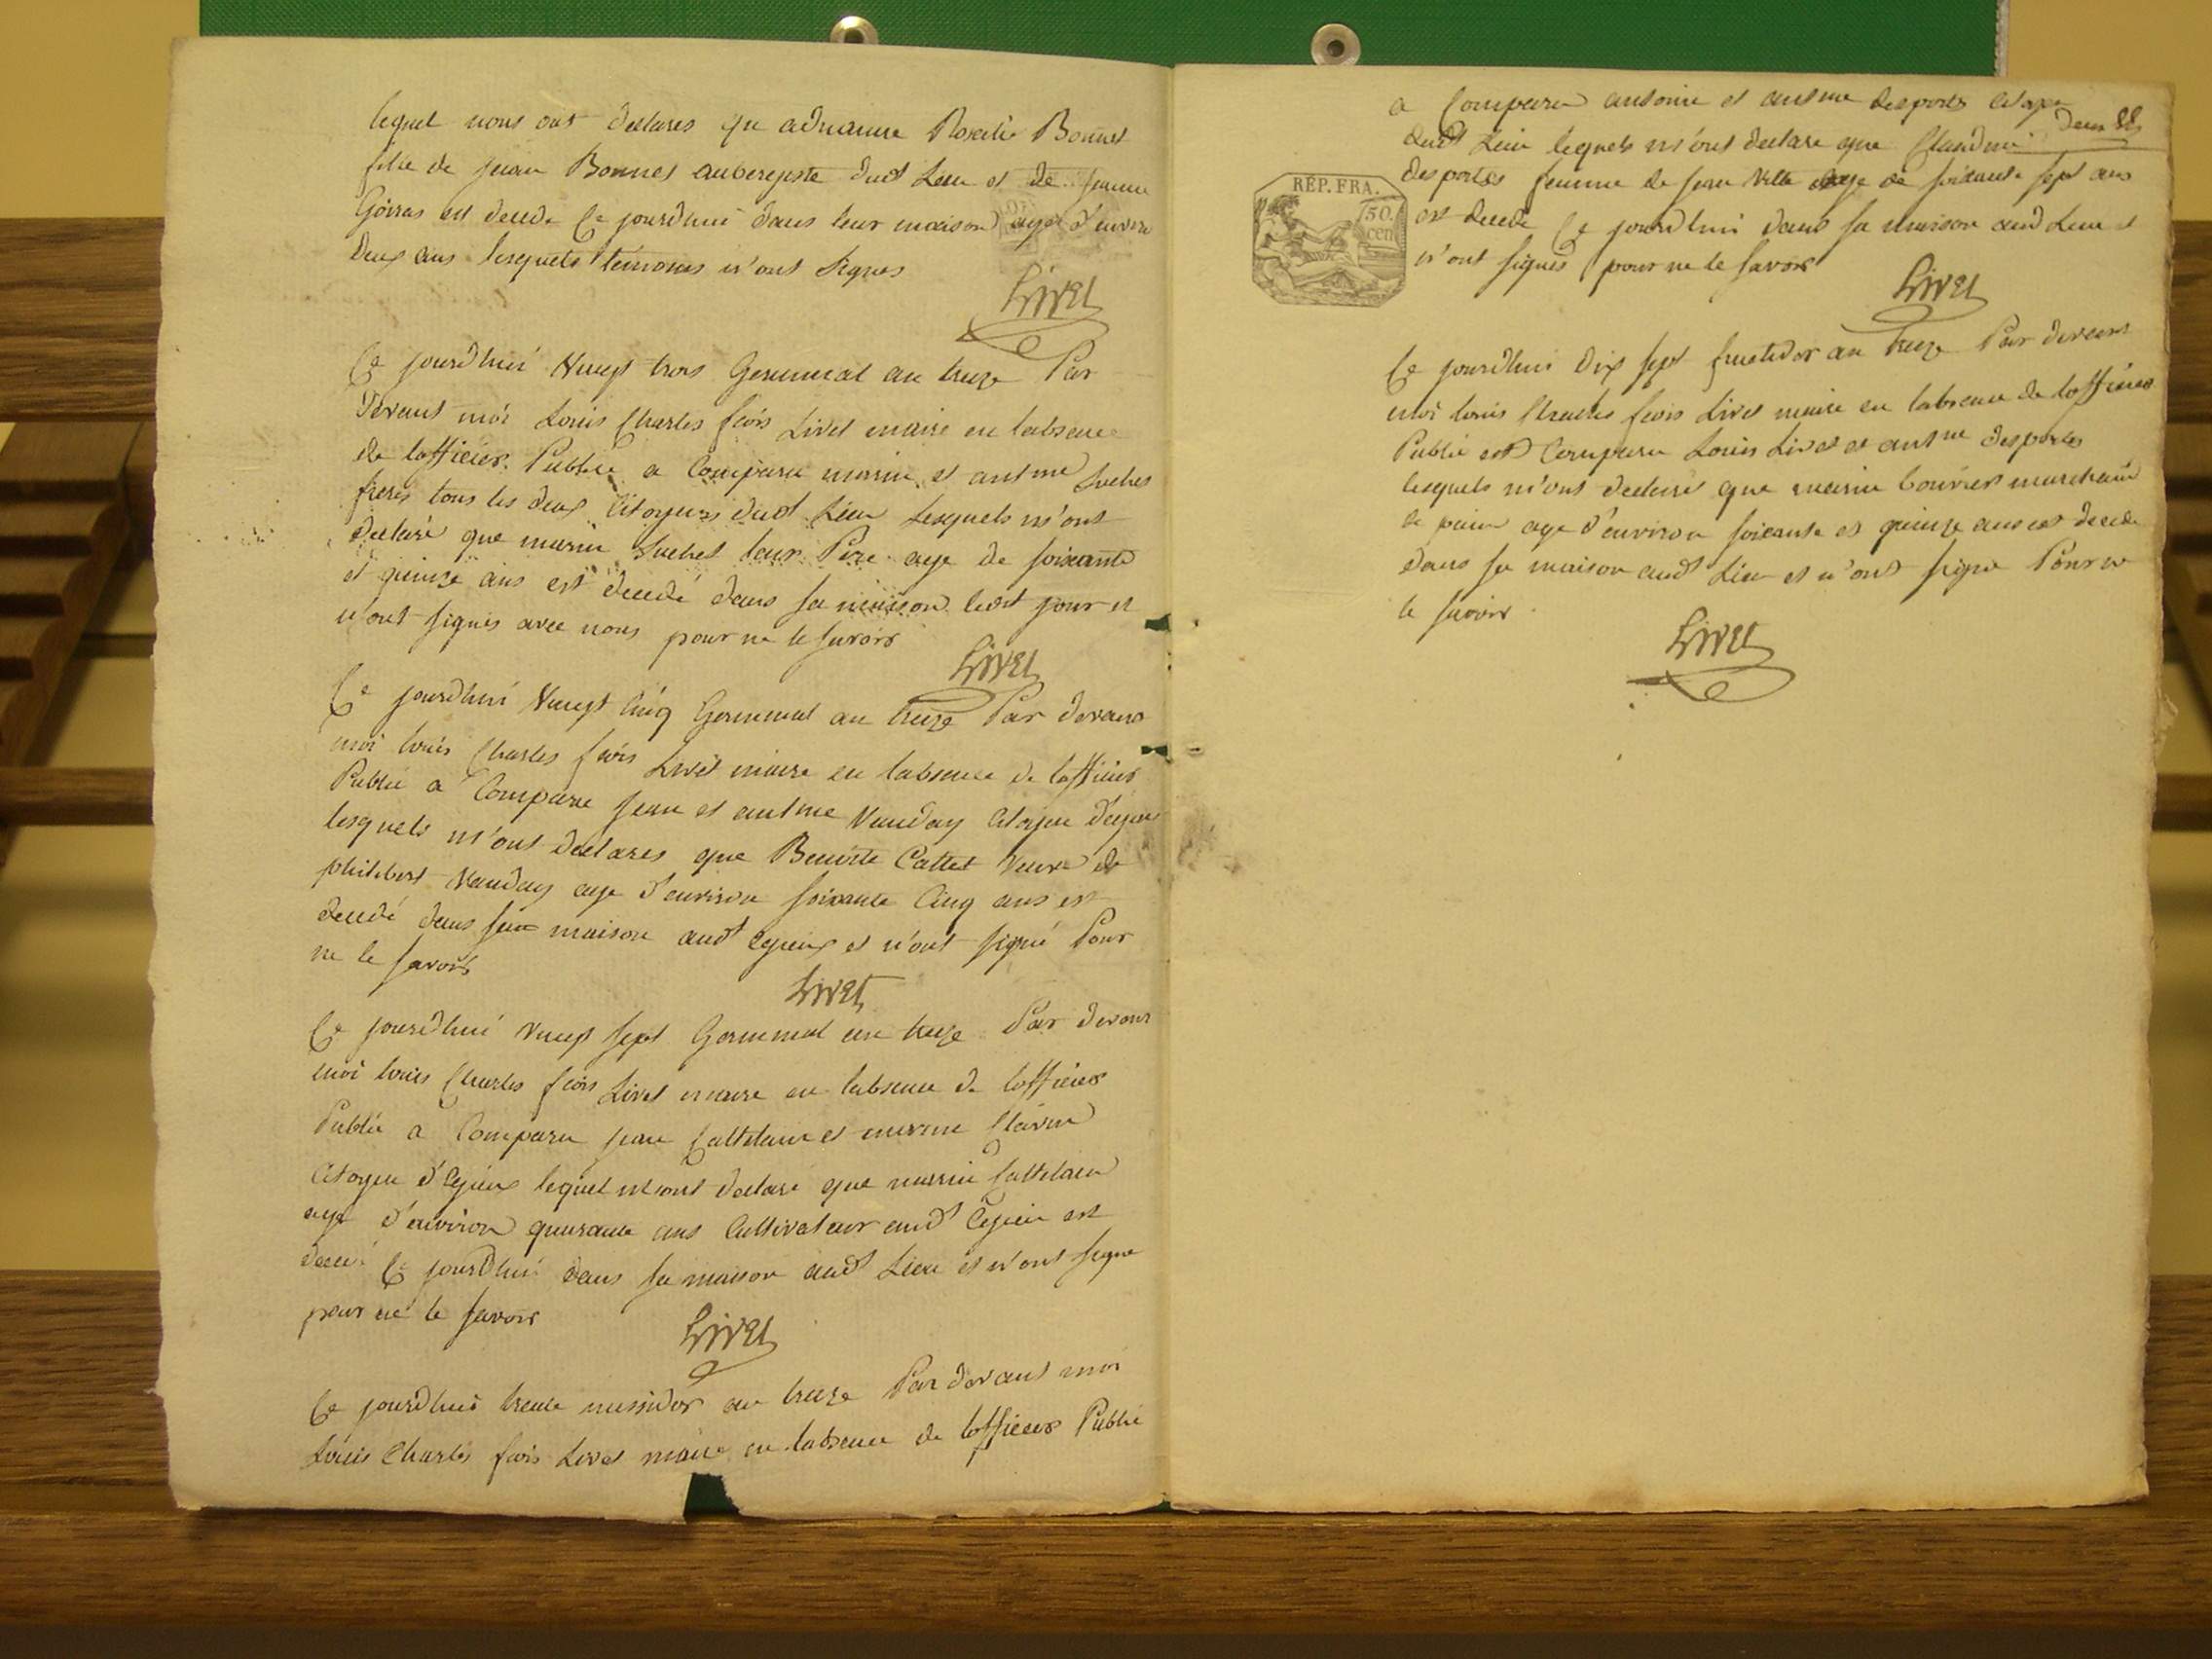 lequel nous ont declares que adrianne Rosalie Bonnet
fille de jean Bonnet aubergiste dudt Lieu et de jeanne
Goiras est decede Ce jourdhui dans leur maison agée d'environ
deux ans lesquels temoins n'ont signes
Livet
Ce jourdhui Vingt trois Germinal an treze Par
devant moi Louis Charles fcois Livet maire en labsence
de lofficier Public a Comparu marin et antme Suchet
freres tous les deux Citoyens dudt Lieu Lesquels m'ont
declaré que marin Suchet leur Pere age de soixante
et quinze ans est decedé dans sa maison ledt jour et
n'ont signés avec nous pour ne le savoir
Livet
Ce jourdhui Vingt Cinq Germinal an treze Par devant
moi louis Charles fcois Livet maire en labsence de lofficier
Public a Comparu jean et antme Vauday Citoyen
lesquels m'ont declares que Benoite Cattet Veuve de
philibert Vauday age d'environ soixante Cinq ans est
decedé dans sa maison audt et n'ont signé Pour
ne le savoir
Livet
Ce jourdhui Vingt sept Germinal an treze Par devant
moi louis Charles fcois Livet maire en labsence de lofficier
Public a Comparu jean Cattelain et
Citoyen lequel m'ont declaré que marin Cattelain
age d'environ quarante ans Cultivateur audt est
decedé Ce jourdhui dans sa maison audt Lieu et n'ont signe
pour ne le savoir
Livet
Ce jourdhui trente messidor an treze Par devant moi
Louis Charles fcois Livet maire en labsence de lofficier Public
a Comparu antoine et antme desportes citoyen
deux
dudt Lieu lequels m'ont declare que Claudine
desportes femme de jean Vette age de soixante sept ans
REP. FRA.
50. cen
est decede Ce jourdhui dans sa maison audt Lieu et
n'ont signés pour ne le savoir
Livet
Ce jourdhui Dix sept fructidor an treze Par devant
moi louis Charles fcois Livet maire en labsence de lofficier
Public est Comparu Louis Livet et antme desportes
lesquels m'ont declaré que marin bouvier marchand
de pain age d'environ soixante et quinze ans est decede
dans sa maison audt Lieu et n'ont signé Pour ne
le savoir
Livet